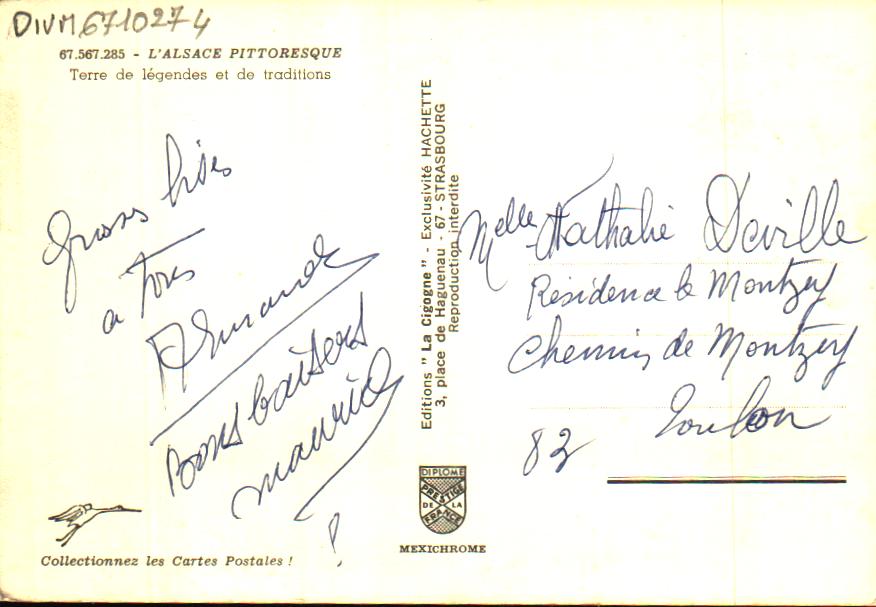 DIVM6710274
67.567.285 - L'ALSACE PITTORESQUE
Terre de légendes et de traditions
Grosses bises
a tous
Armande
Bons baisers
maurice
Editions " La Cigogne " - Exclusivité HACHETTE
3, place de Haguenau - 67 - STRASBOURG
Reproduction interdite
Melle Nathalie Deville
Résidence le Montzey
Chemin de Montzey
Toulon
83
DIPLOME
PRESTIGE
DE LA
FRANCE
MEXICHROME
Collectionnez les Cartes Postales !